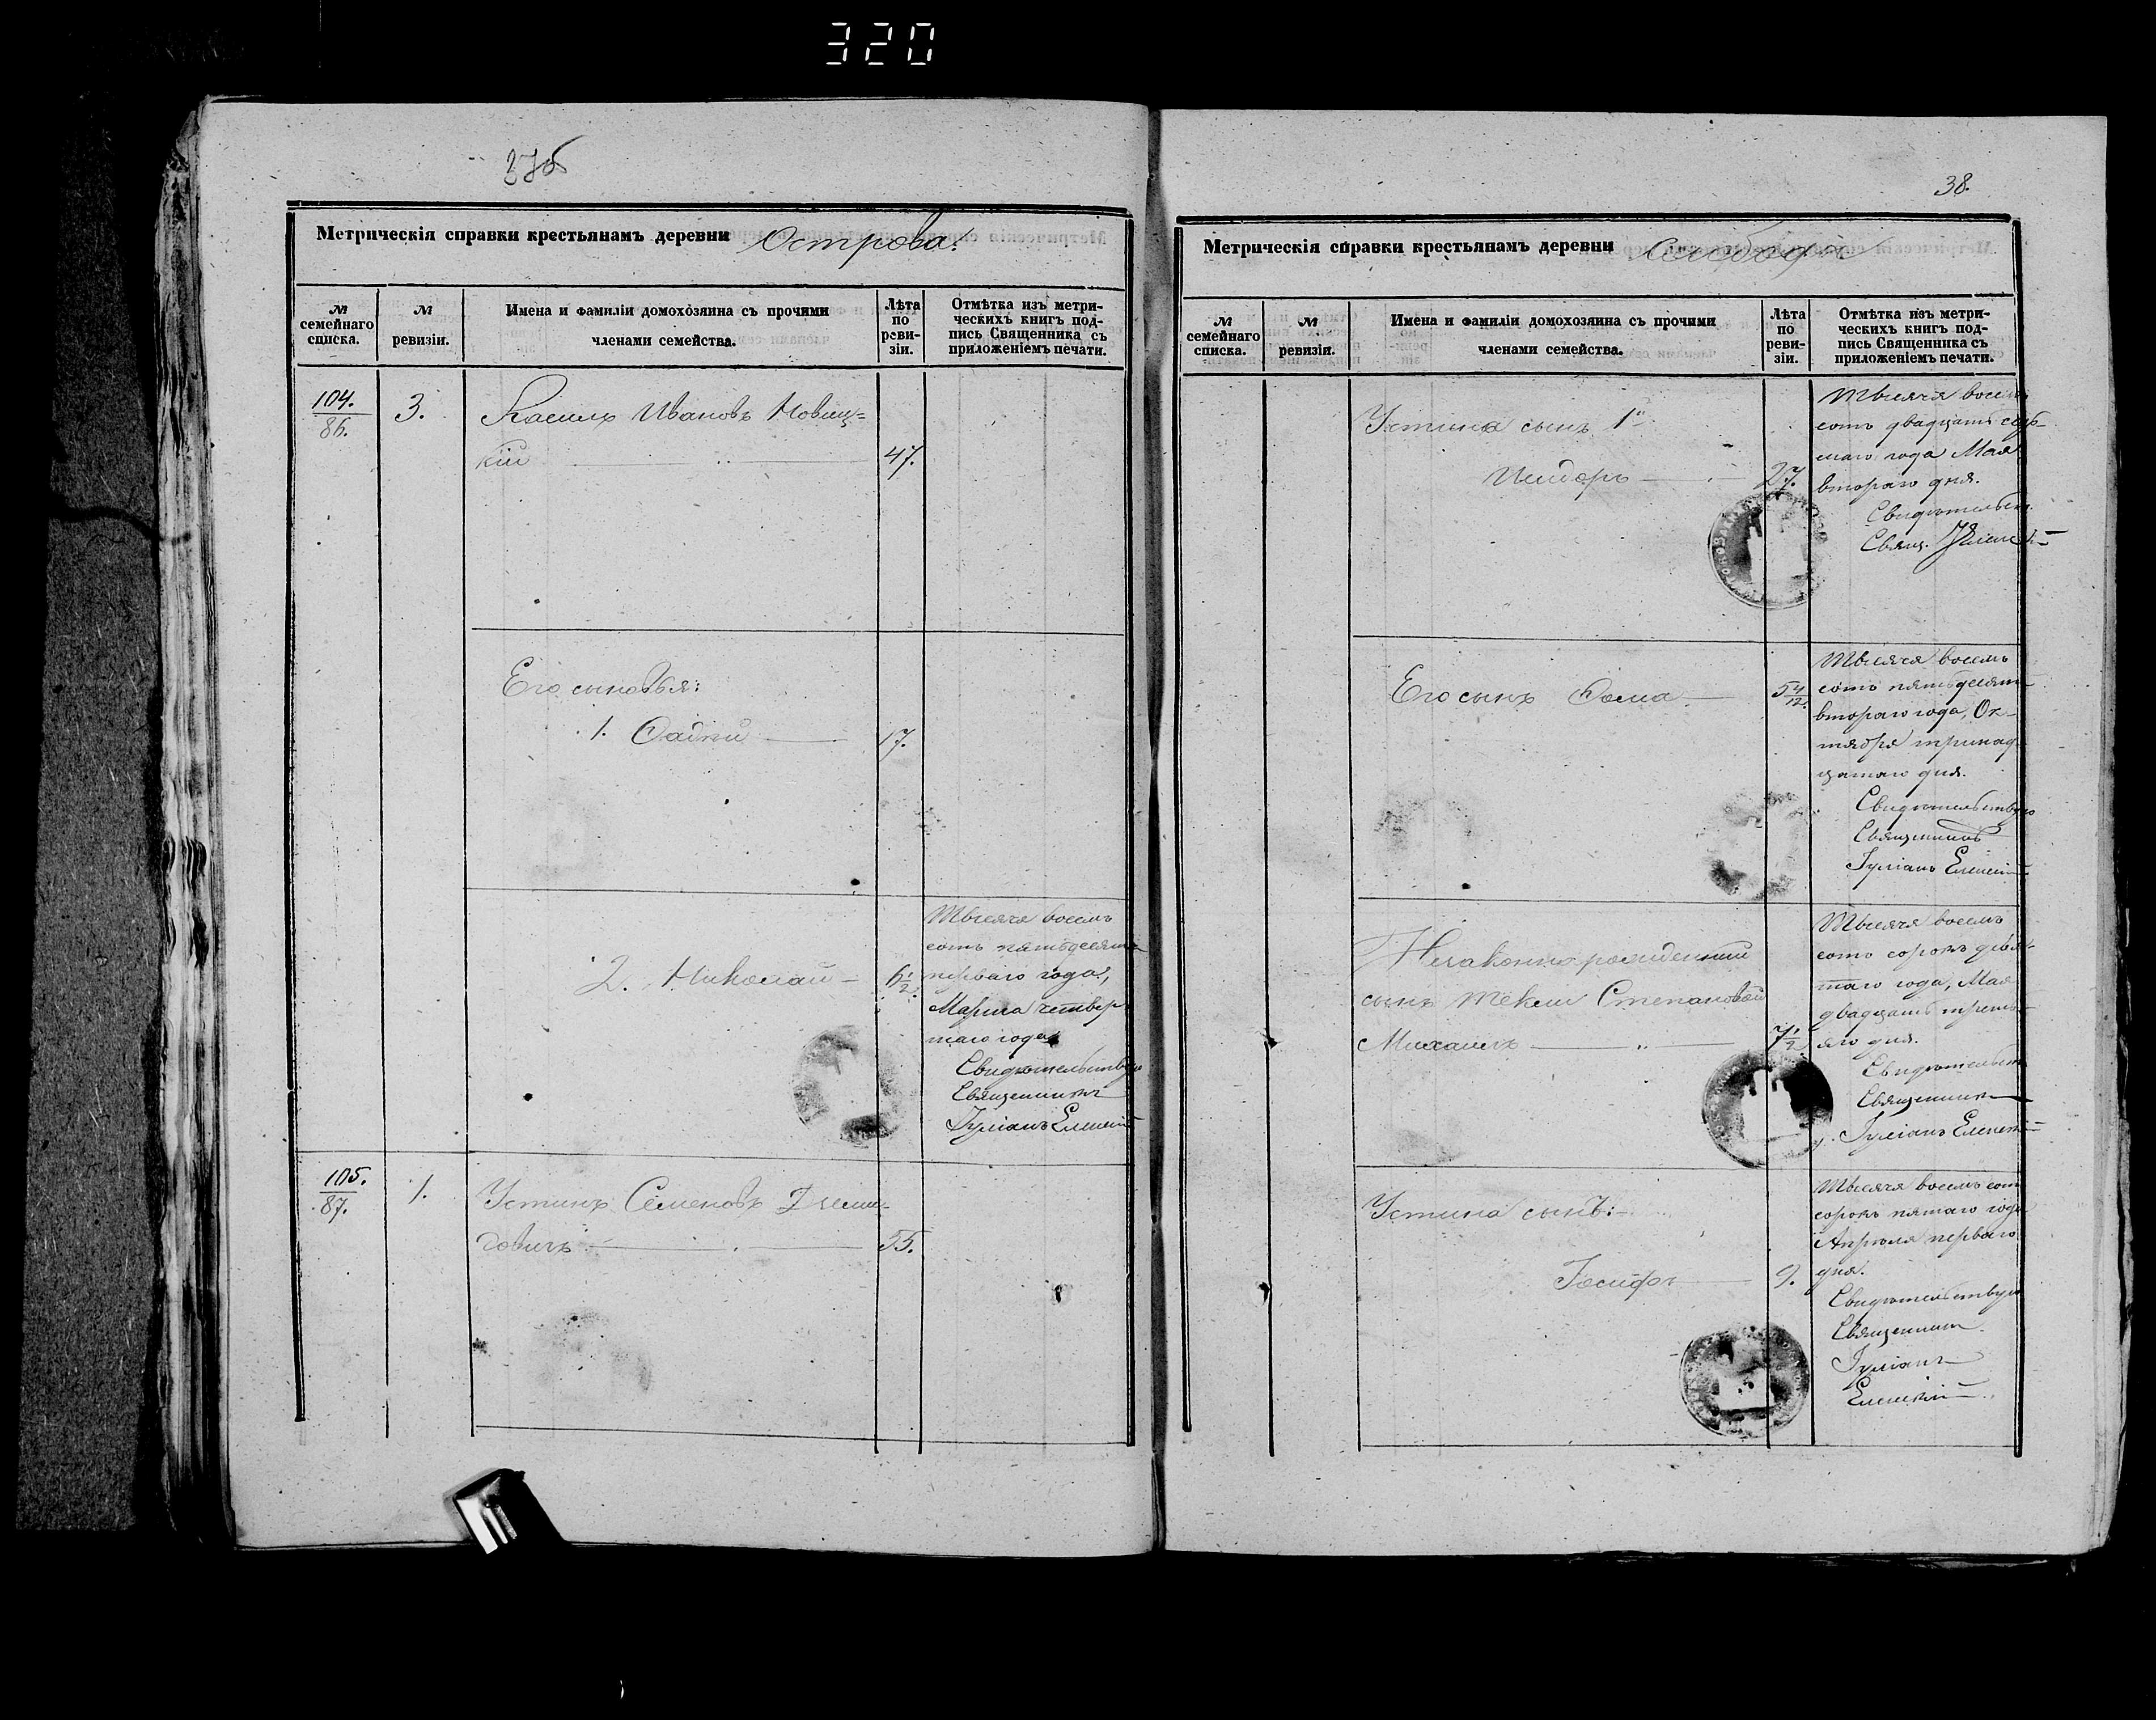 320
37об
Метрическія справки крестьянамъ деревни Острова.
№ семейнаго списка.
№ ревизіи.
Имена и Фамиліи домохозяина съ прочими членами семейства.
Лѣта по реви-зіи.
Отмѣтка изъ метри-ческихъ книгъ под-пись Священника съ приложеніемъ печати.
104.
86.
3.
Ивановъ Новиц=
кій 47.
Его сыновья:
1. 17.
2. Николай 6 1/2.
Тысяча восемь
сотъ пятьдесятъ
перваго года,
Марта четвер
таго года
Свидѣтельствую
Священникъ
Іуліанъ
105.
87.
1.
Устинъ Семеновъ
55.
38.
Метрическія справки крестьянамъ деревни
№ семейнаго списка.
№ ревизіи.
Имена и Фамиліи домохозяина съ прочими членами семейства.
Лѣта по реви-зіи.
Отмѣтка изъ метри-ческихъ книгъ под-пись Священника съ приложеніемъ печати.
Устина сынъ 1й
Исидоръ 27.
Тысяча восемь
сотъ двадцать седь-
маго года Мая
втораго дня.
Свидѣтельст.
Свящ.
Его сынъ Ѳома 5 4/12.
Тысяча восемь
сотъ пятьдесят-
втораго года, Ок-
тября тринад-
цатаго дня.
Свидѣтельствую
Священникъ
Іуліанъ
Незаконнорожденный
сынъ Текли Степановой
Михаилъ 7 1/2.
Тысяча восемь
сотъ сорокъ девя-
таго года, Мая
двадцать треть-
яго дня.
Свидѣтельст
Священникъ
Іуліанъ
Устина сынъ:
Іосифъ 9.
Тысяча восемь сотъ
сорокъ пятаго года
Апрѣля перваго
дня.
Свидѣтельствую
Священникъ
Іуліанъ